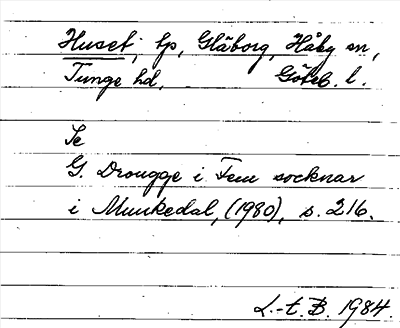 Huset, tp, Glåborg, Håby sn,
Tunge hd, Göteb. l.
Se
G. Drougge i Fem socknar
i Munkedal, (1980), s. 216.
L.-t. B. 1984.